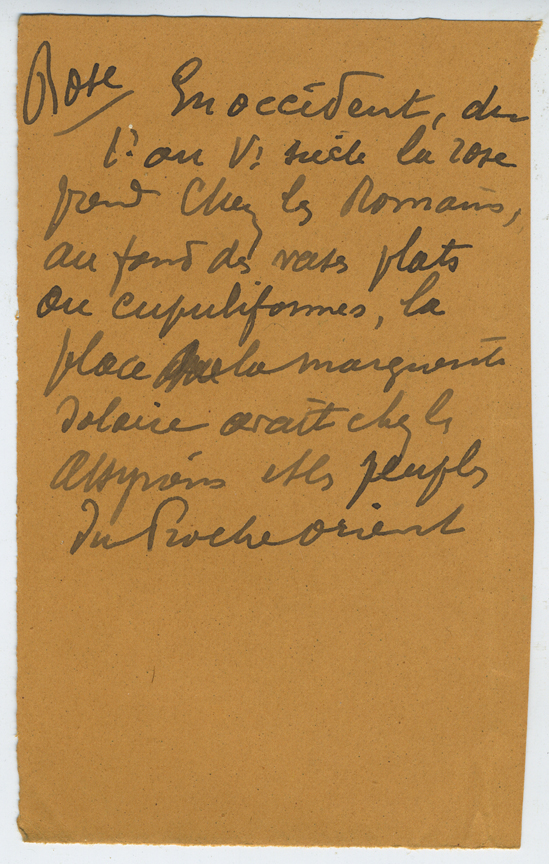 Rose En occident, du
I? au V? siècle la rose
prend chez les Romains,
au fond des vases plats
ou cupuliformes, la
place que la marguerite
solaire avait chez les
Assyriens et les peuples
du Proche orient